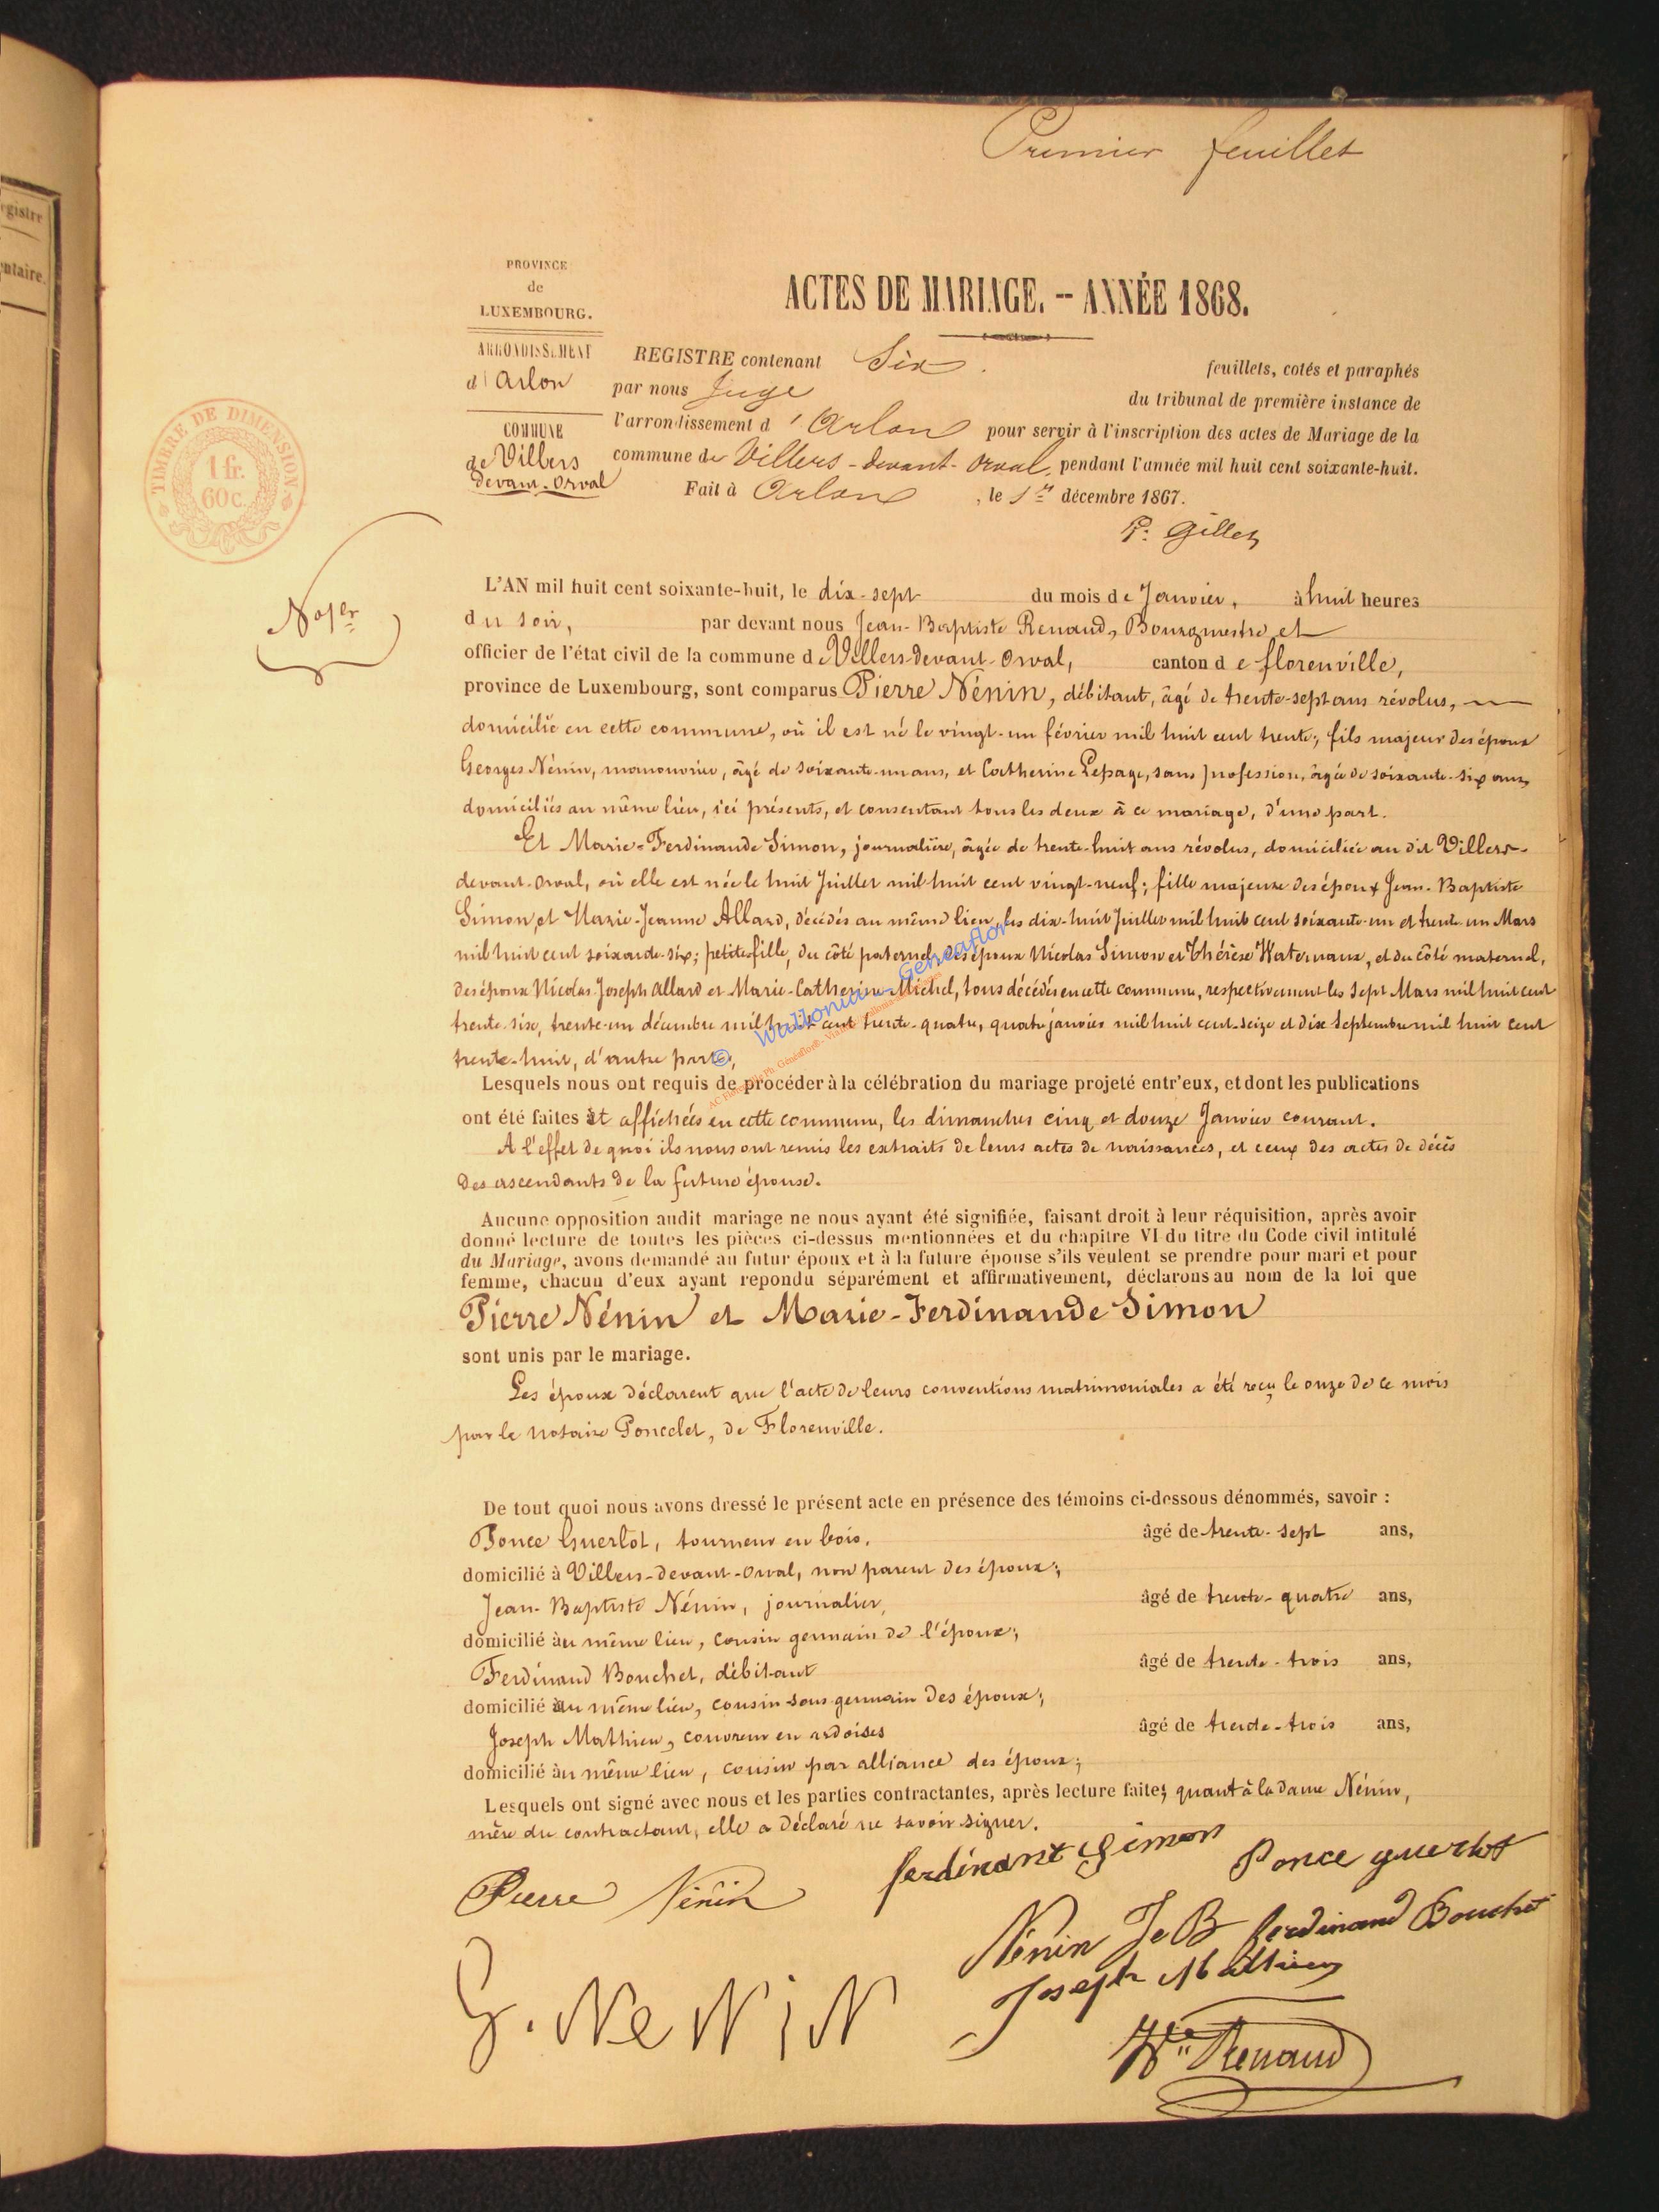 Premier feuillet
egistre
entaire.
PROVINCE
de
LUXEMBOURG.
ARRONDISSEMENT
d'Arlon
COMMUNE
de Villers
devant-Orval
TIMBRE DE DIMENSION
1 fr.
60 c.
ACTES DE MARIAGE. — ANNÉE 1868.
REGISTRE contenant Six feuillets, cotés et paraphés
par nous Juge du tribunal de première instance de
l'arrondissement d'Arlon pour servir à l'inscription des actes de Mariage de la
commune de Villers-devant-Orval, pendant l'année mil huit cent soixante-huit.
Fait à Arlon, le 1er décembre 1867.
P. Gillet
No 1er
L'AN mil huit cent soixante-huit, le dix-sept du mois de Janvier, à huit heures
du soir, par devant nous Jean-Baptiste Renaud, Bourgmestre et
officier de l'état civil de la commune de Villers-devant-Orval, canton de florenville,
province de Luxembourg, sont comparus Pierre Nénin, débitant, âgé de trente-sept ans révolus,
domicilié en cette commune, où il est né le vingt-un février mil huit cent trente; fils majeur des époux
Georges Nénin, manouvrier, âgé de soixante-un ans, et Catherine Lepage, sans profession, âgée de soixante-six ans,
domiciliés au même lieu, ici présents, et consentant tous les deux à ce mariage, d'une part.
Et Marie-Ferdinande Simon, journalière, âgée de trente-huit ans révolus, domiciliée au dit Villers-
devant-Orval, où elle est née le huit Juillet mil huit cent vingt-neuf; fille majeure des époux Jean-Baptiste
Simon et Marie-Jeanne Allard, décédés au même lieu, les dix-huit Juillet mil huit cent soixante-un et trente-un Mars
mil huit cent soixante-six; petite fille, du côté paternel, des époux Nicolas Simon et Thérèse Waternaux, et du côté maternel,
des époux Nicolas-Joseph Allard et Marie-Catherine Michel, tous décédés en cette commune, respectivement les sept Mars mil huit cent
trente-six, trente-un décembre mil huit cent trente-quatre, quatre janvier mil huit cent-seize et dix Septembre mil huit cent
trente-huit, d'autre part,
© Wallonia - Geneaflor
Lesquels nous ont requis de procéder à la célébration du mariage projeté entr'eux, et dont les publications
ont été faites et affichées en cette commune, les dimanches cinq et douze Janvier courant.
A l'effet de quoi ils nous ont remis les extraits de leurs actes de naissances, et ceux des actes de décès
des ascendants de la future épouse.
Aucune opposition audit mariage ne nous ayant été signifiée, faisant droit à leur réquisition, après avoir
donné lecture de toutes les pièces ci-dessus mentionnées et du chapitre VI du titre du Code civil intitulé
du Mariage, avons demandé au futur époux et à la future épouse s'ils veulent se prendre pour mari et pour
femme, chacun d'eux ayant repondu séparément et affirmativement, déclarons au nom de la loi que
Pierre Nénin et Marie-Ferdinande Simon
sont unis par le mariage.
Les époux déclarent que l'acte de leurs conventions matrimoniales a été reçu le onze de ce mois
par le notaire Poncelet, de Florenville.
De tout quoi nous avons dressé le présent acte en présence des témoins ci-dessous dénommés, savoir :
Ponce Guerlot, tourneur en bois, âgé de trente-sept ans,
domicilié à Villers-devant-Orval, non parent des époux;
Jean-Baptiste Nénin, journalier, âgé de trente-quatre ans,
domicilié au même lieu, cousin germain de l'époux;
Ferdinand Bouchet, débitant âgé de trente-trois ans,
domicilié au même lieu, cousin sous germain des époux;
Joseph Mathieu, couvreur en ardoises âgé de trente-trois ans,
domicilié au même lieu, cousin par alliance des époux;
Lesquels ont signé avec nous et les parties contractantes, après lecture faite; quant à la dame Nénin,
mère du contractant, elle a déclaré ne savoir signer.
Pierre Nénin ferdinant Simon Ponce guerlot
Nénin J e B ferdinand Bouchet
G. NeNiN Joseph Mathieu
Renaud